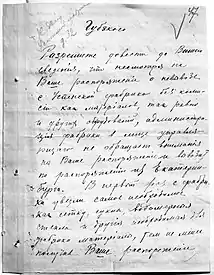 Губакого
Разрешите довести до Вашего
сведения, что несмотря на
Ваше распоряжение о невывозе
с Успенской фабрики без комис-
сии как материалов, так равно
и других оборудований, администра-
ция фабрики в лице управля-
ющего не обращает внимания
на Ваше распоряжение и вывозит
по распоряжению из Екатерин-
бурга. В первый раз с фабри-
ки увезли самое необходимое
как сетки, сукна,
и другие необходимые для
фабрики материалы, тем не менее
Ваше распоряжение